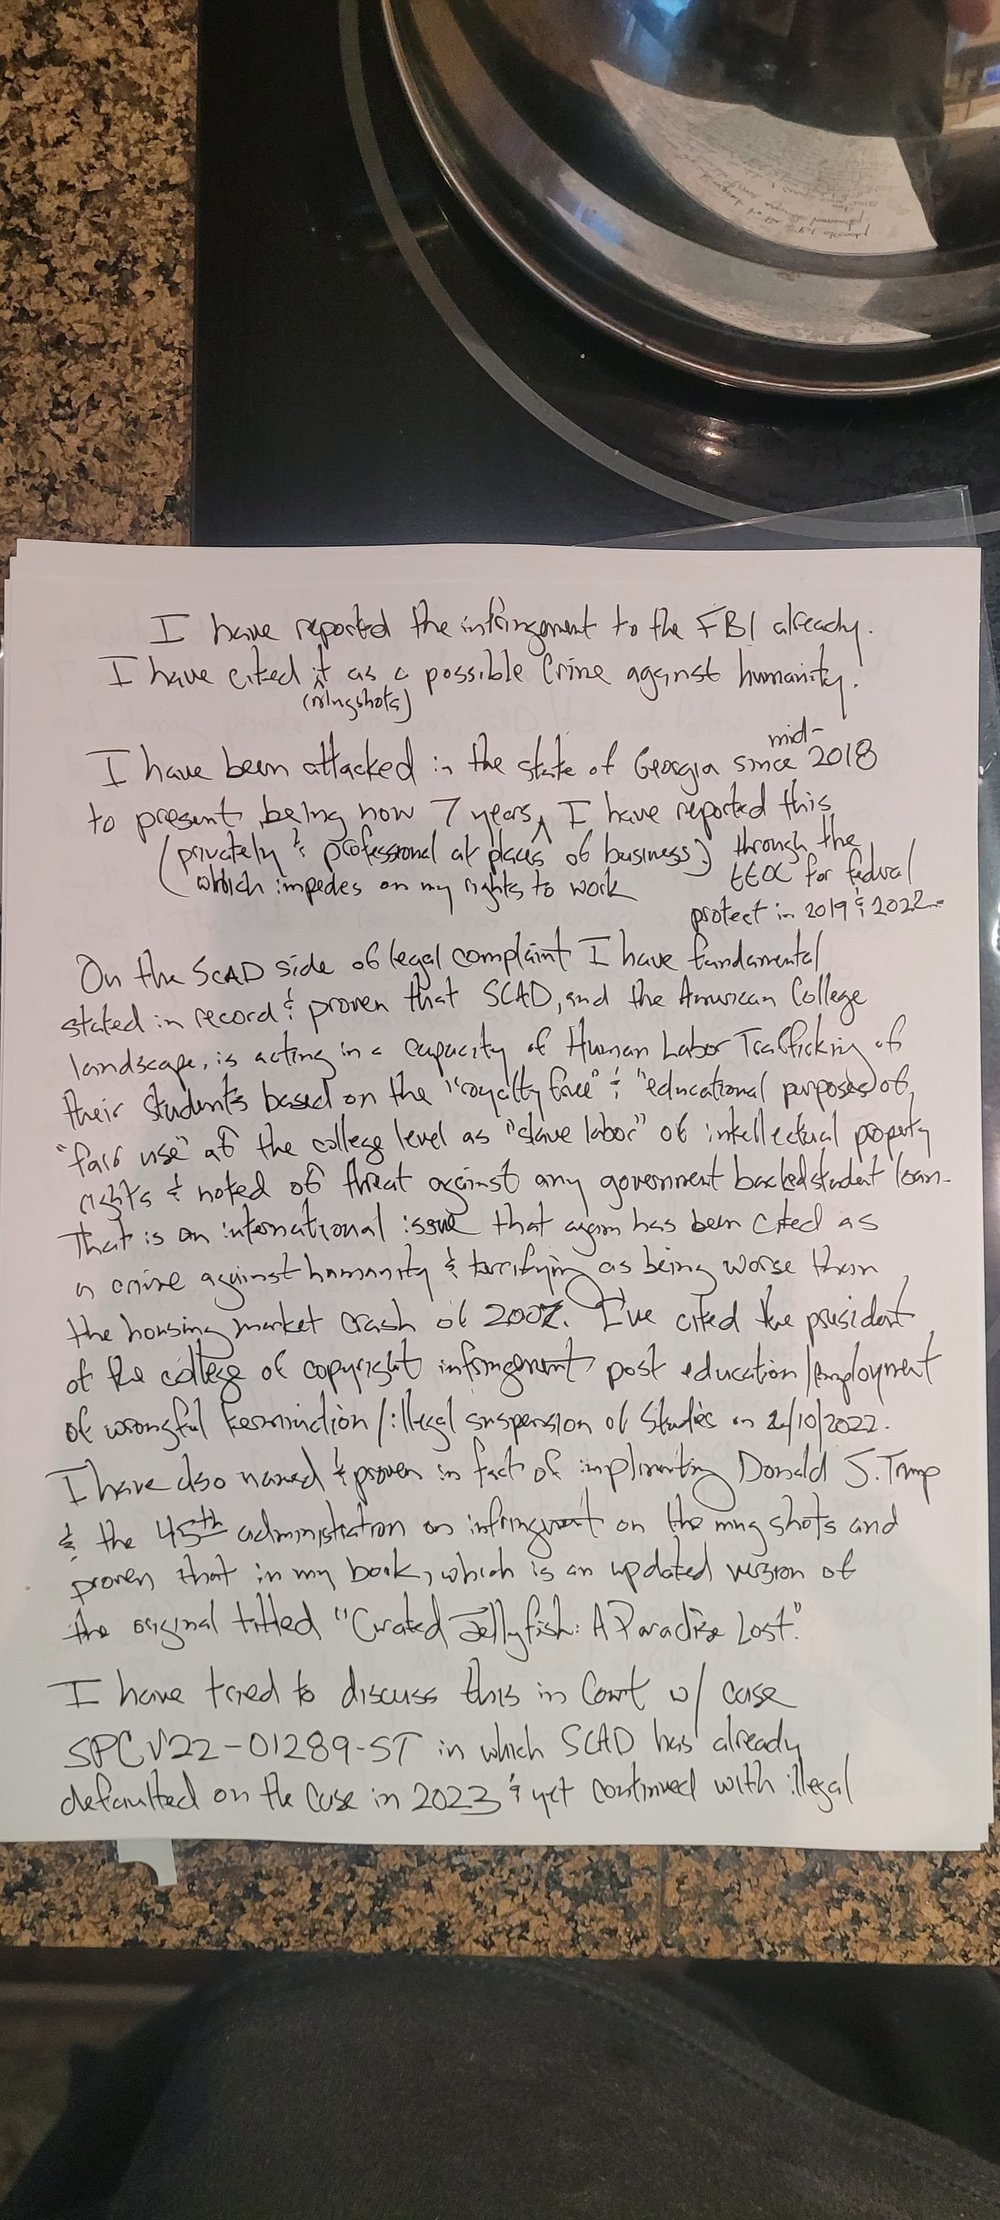 I have reported the infringement to the FBI already.
I have cited it as a possible Crime against humanity.
(mugshots)
I have been attacked in the state of Georgia since mid-2018
to present being now 7 years, I have reported this
(privately & professional at places of business) through the
which impedes on my rights to work EEOC for federal
protect in 2019 & 2022.
On the SCAD side of legal complaint I have fundamental
stated in record & proven that SCAD, and the American College
landscape, is acting in a capacity of Human Labor Trafficking of
their students based on the "royalty free" & "educational purposes of
"fair use" at the college level as "slave labor" of intellectual property
rights & noted of threat against any government backed student loan.
That is an international issue that again has been cited as
a crime against humanity & terrifying as being worse then
the housing market crash of 2007. I've cited the president
of the college of copyright infringement post education/employment
of wrongful termination/illegal suspension of studies on /10/2022.
I have also named & proven in fact of implimenting Donald J. Trump
& the 45th administration on infringment on the mug shots and
proven that in my book, which is an updated version of
the original titled "Curated Jellyfish: A Paradise Lost."
I have tried to discuss this in Court w/ case
SPCV22-01289-ST in which SCAD has already
defaulted on the case in 2023 & yet continued with illegal